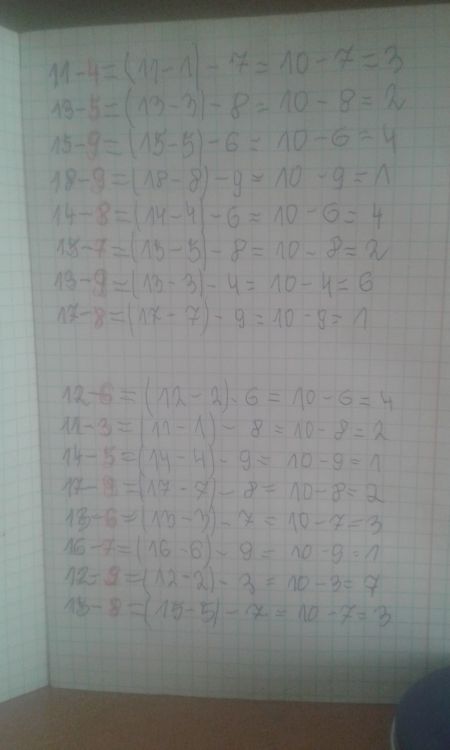 11-4=(11-1)-7=10-7=3
13-5=(13-3)-8=10-8=2
15-9=(15-5)-6=10-6=4
18-9=(18-8)-9=10-9=1
14-8=(14-4)-6=10-6=4
15-7=(15-5)-8=10-8=2
13-9=(13-3)-4=10-4=6
17-8=(17-7)-9=10-9=1
12-6=(12-2)-6=10-6=4
11-3=(11-1)-8=10-8=2
14-5=(14-4)-9=10-9=1
17-9=(17-7)-8=10-8=2
13-6=(13-3)-7=10-7=3
16-7=(16-6)-9=10-9=1
12-9=(12-2)-3=10-3=7
15-8=(15-5)-7=10-7=3